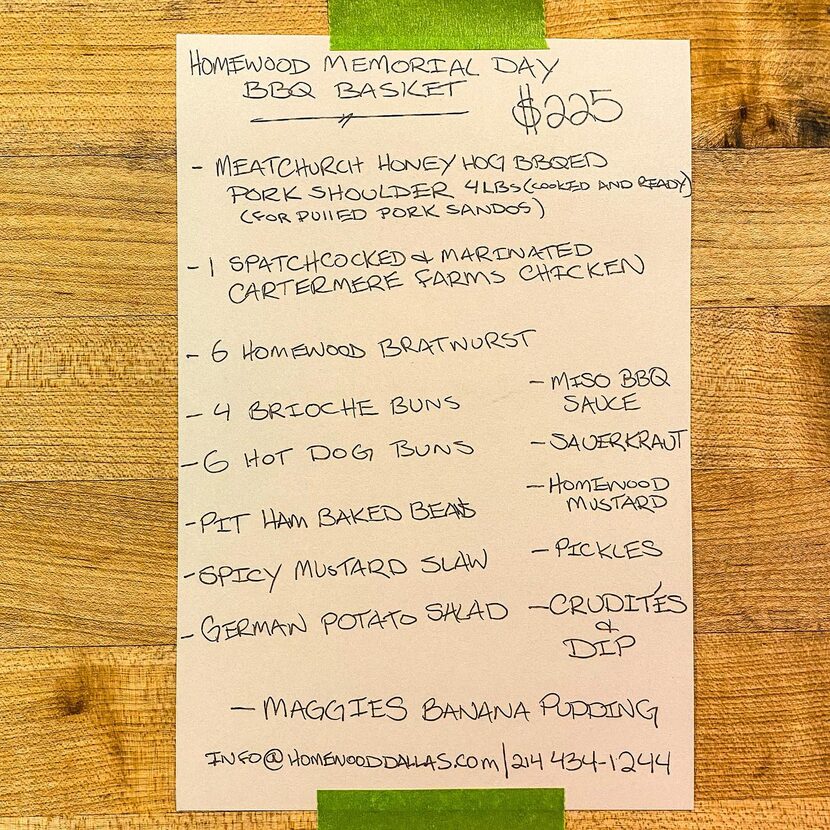 HOMEWOOD MEMORIAL DAY
BBQ BASKET
$225
- MEATCHURCH HONEY HOG BBQED
PORK SHOULDER 4 LBS (COOKED AND READY)
(FOR PULLED PORK SANDOS)
- 1 SPATCHCOCKED & MARINATED
CARTERMERE FARMS CHICKEN
- 6 HOMEWOOD BRATWURST
- 4 BRIOCHE BUNS
- 6 HOT DOG BUNS
- PIT HAM BAKED BEANS
- SPICY MUSTARD SLAW
- GERMAN POTATO SALAD
- MISO BBQ
SAUCE
- SAUERKRAUT
- HOMEWOOD
MUSTARD
- PICKLES
- CRUDITÉS
&
DIP
- MAGGIES BANANA PUDDING
INFO@HOMEWOODDALLAS.COM | 214 434-1244